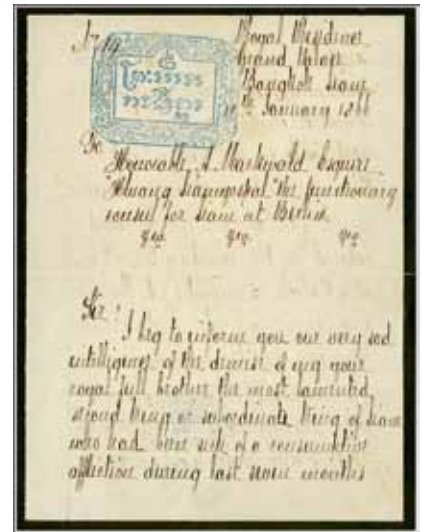 Royal Residence
Grand Palace
Bangkok Siam
January 1866
To
Honorable A Markwald Esquire
Luang Siamgoskol the functionary
consul for Siam at Berlin
Sir!
I beg to inform you our very sad
intelligence of the decease of my your
royal full brother the most lamented
second king or subordinate king of Siam
who had been sick of a consumptive
affection during last seven months